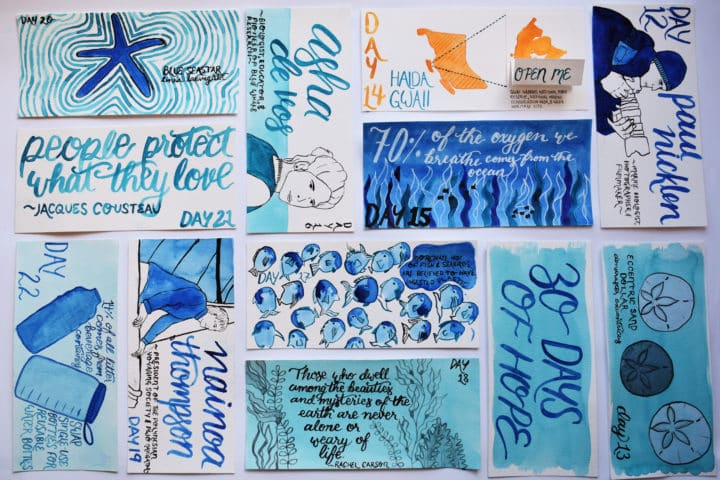 DAY 20
BLUE SEASTAR
people protect
what they love
~JACQUES COUSTEAU
DAY 21
asha
de vos
~BIOLOGIST, EDUCATOR, &
PIONEER OF BLUE WHALE
RESEARCH~
DAY 16
DAY
14
HAIDA
GWAII
OPEN ME
70% of the oxygen we
breathe comes from the
ocean
DAY 15
DAY
12
paul
nicklen
DAY
22
of all litter
comes from
beverage
containers
SWAP
SINGLE USE
BOTTLES FOR
REUSABLE
WATER BOTTLES
nainoa
thompson
~PRESIDENT OF THE POLYNESIAN
VOYAGING SOCIETY &
DAY 19
DAY 17
OF FISH & SEABIRDS
ARE BELIEVED TO HAVE
DAY
18
Those who dwell
among the beauties
and mysteries of the
earth are never
alone or
weary of
life.
~RACHEL CARSON
30 DAYS
OF HOPE
ECCENTRIC SAND
DOLLAR
day 13